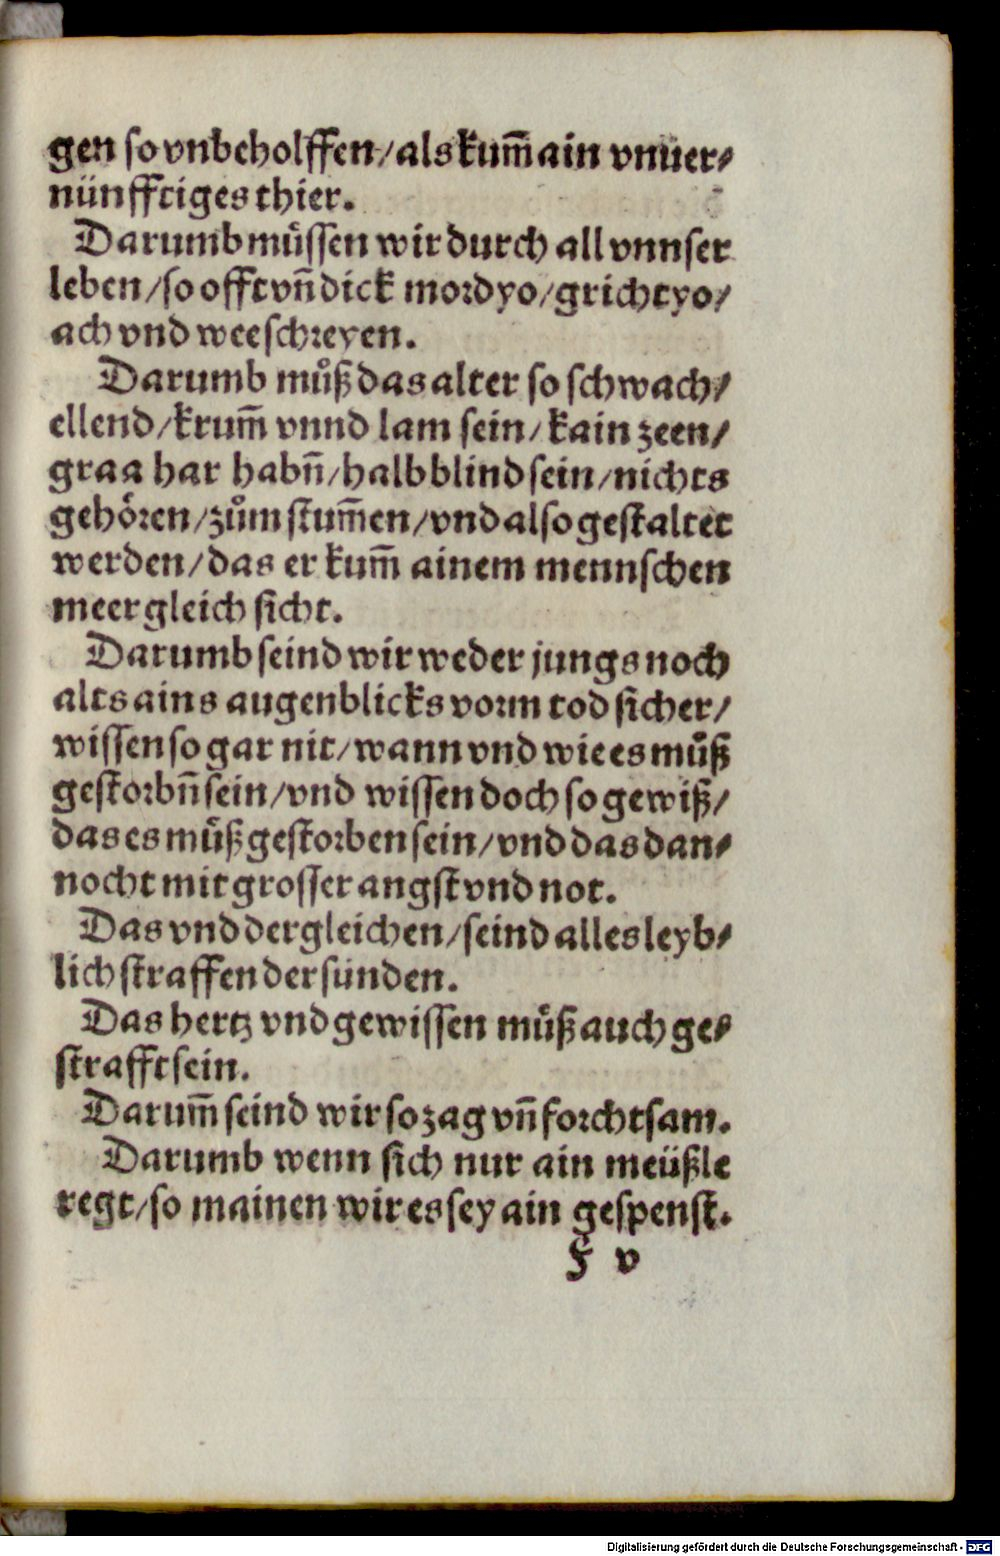 gen so vnbeholffen/als kum̄ ain vnuer⸗
nünfftiges thier.
Darumb muͤssen wir durch all vnnser
leben/so offt vn̄ dick mordyo/grichtyo/
ach vnd wee schreyen.
Darumb muͦß das alter so schwach/
ellend/krum̄ vnnd lam sein/kain zeen/
graa har habn̄/halb blind sein/nichts
gehoͤren/zuͦm stum̄en/vnd also gestaltet
werden/das er kum̄ ainem mennschen
meer gleich sicht.
Darumb seind wir weder jungs noch
alts ains augenblicks vorm tod sicher/
wissen so gar nit/wann vnd wie es muͦß
gestorbn̄ sein/vnd wissen doch so gewiß/
das es muͦß gestorben sein/vnd das dan⸗
nocht mit grosser angst vnd not.
Das vnd dergleichen/seind alles leyb⸗
lich straffen der sünden.
Das hertz vnd gewissen muͦß auch ge⸗
strafft sein.
Darum̄ seind wir so zag vn̄ forchtsam.
Darumb wenn sich nur ain meüßle
regt/so mainen wir es sey ain gespenst.
F v
Digitalisierung gefördert durch die Deutsche Forschungsgemeinschaft - DFG